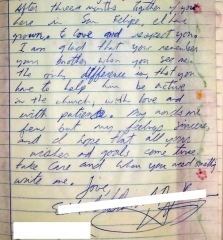 After three months together of you
here in San Felipe, I have
grown to love and respect you.
I am glad that you remember
your brother when you see me.
the only difference is that you
have to help him be active
in the church, with love and
with patience. My words are
few but my feelings sincere,
and I hope that all your
wishes and goals come true.
take care and when you need
write me.
love,